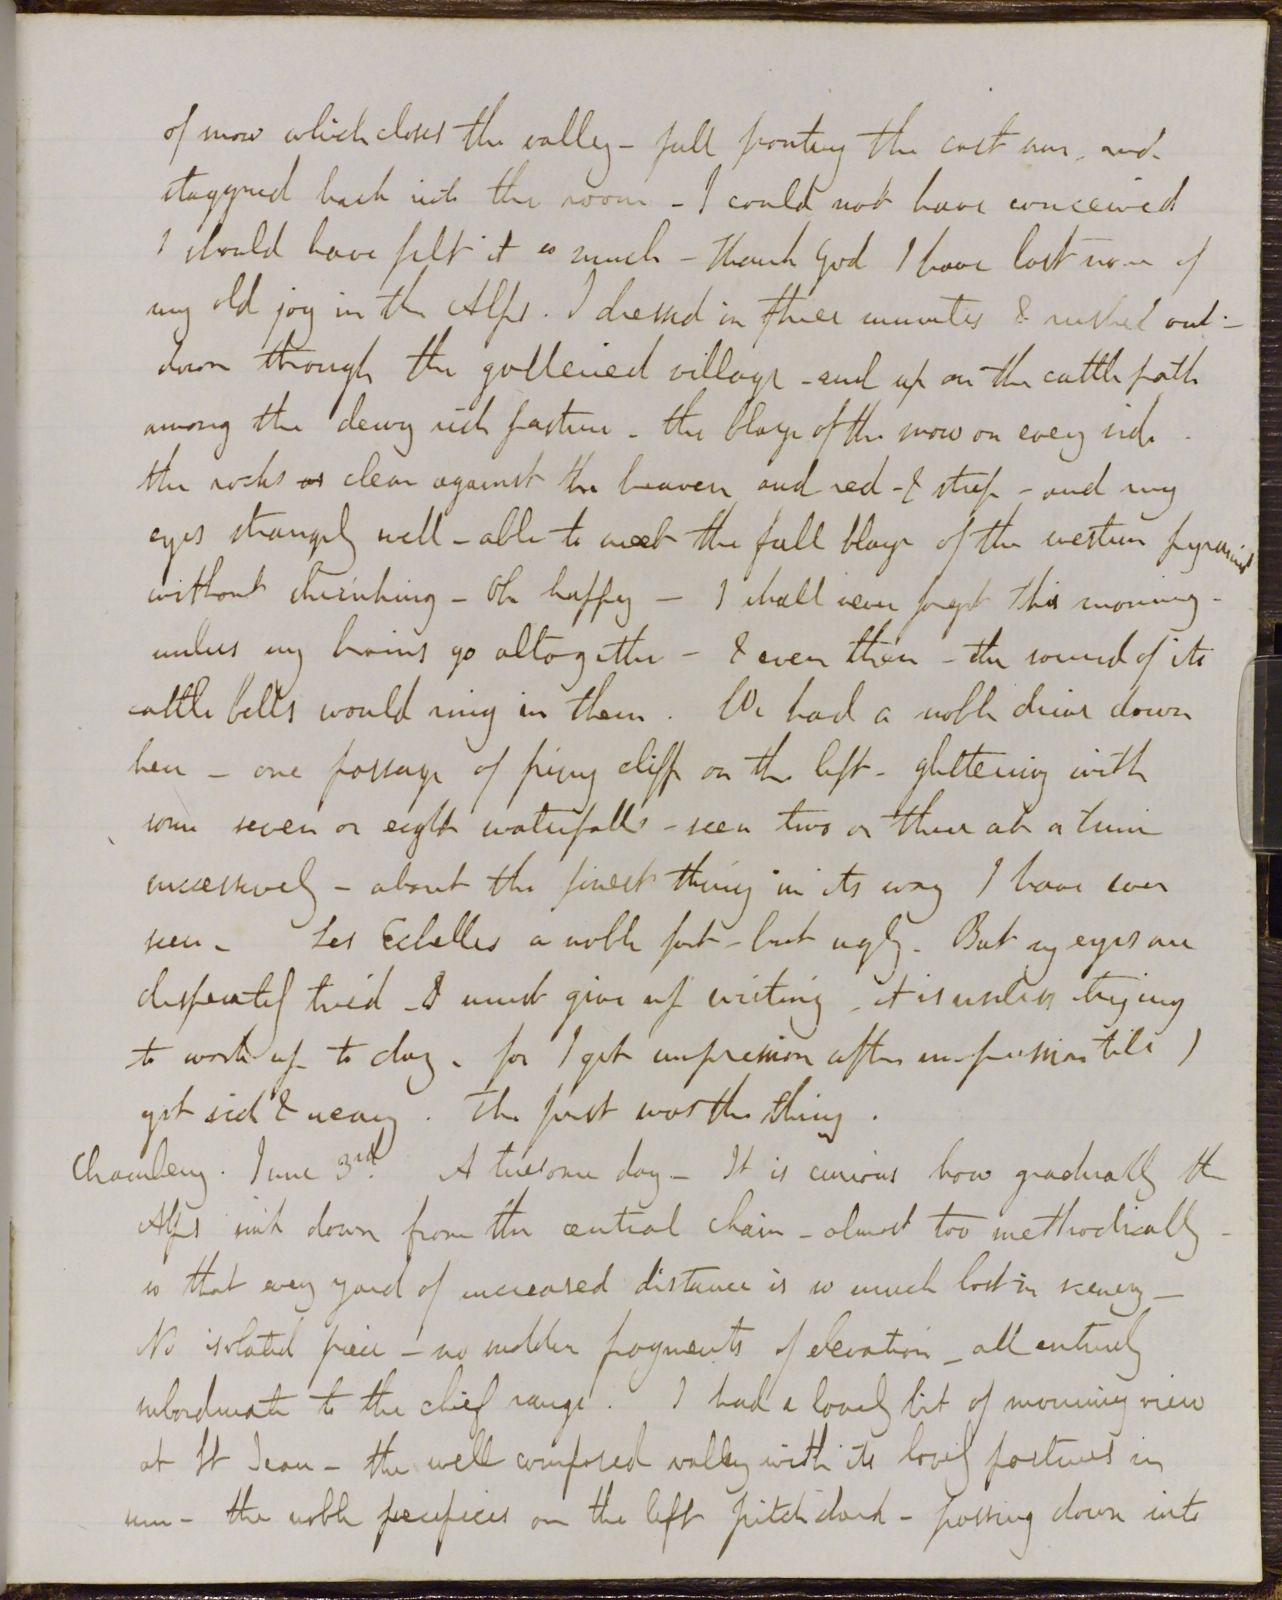 of snow which closes the valley - full fronting the east sun, and
staggered back into the room - I could not have conceived
I should have felt it so much - thank God I have lost none of
my old joy in the Alps. I dressed in three minutes & rushed out -
down through the galleried village - and up on the cattle path
among the dewy rich pasture - the blaze of the snow on every side -
the rocks as clear against the heaven and red - & steep - and my
eyes strangely well - able to meet the full blaze of the western pyramid
without shrinking - Oh happy - I shall never forget this morning -
unless my brains go altogether - & even then - the sound of its
cattle bells would ring in them. We had a noble drive down
here - one passage of cliff on the left - glittering with
some seven or eight waterfalls - seen two or three at a time
successively - about the finest thing in its way I have ever
seen - Les Echelles a noble fort - but ugly. But my eyes are
desperately tired - I must give up writing - it is useless trying
to work up to day - for I get impression after impression till I
get sick & weary. The first was the thing.
Chambery. June 3rd. A tiresome day - It is curious how gradually the
Alps sink down from the central chain - almost too methodically -
so that every yard of increased distance is so much lost in scenery -
No isolated piece - no sudden fragments of elevation - all entirely
subordinate to the chief range. I had a lovely bit of morning view
at St Jean - the well composed valley with its lovely pastures in
sun - the noble precipices on the left pitch dark - passing down into